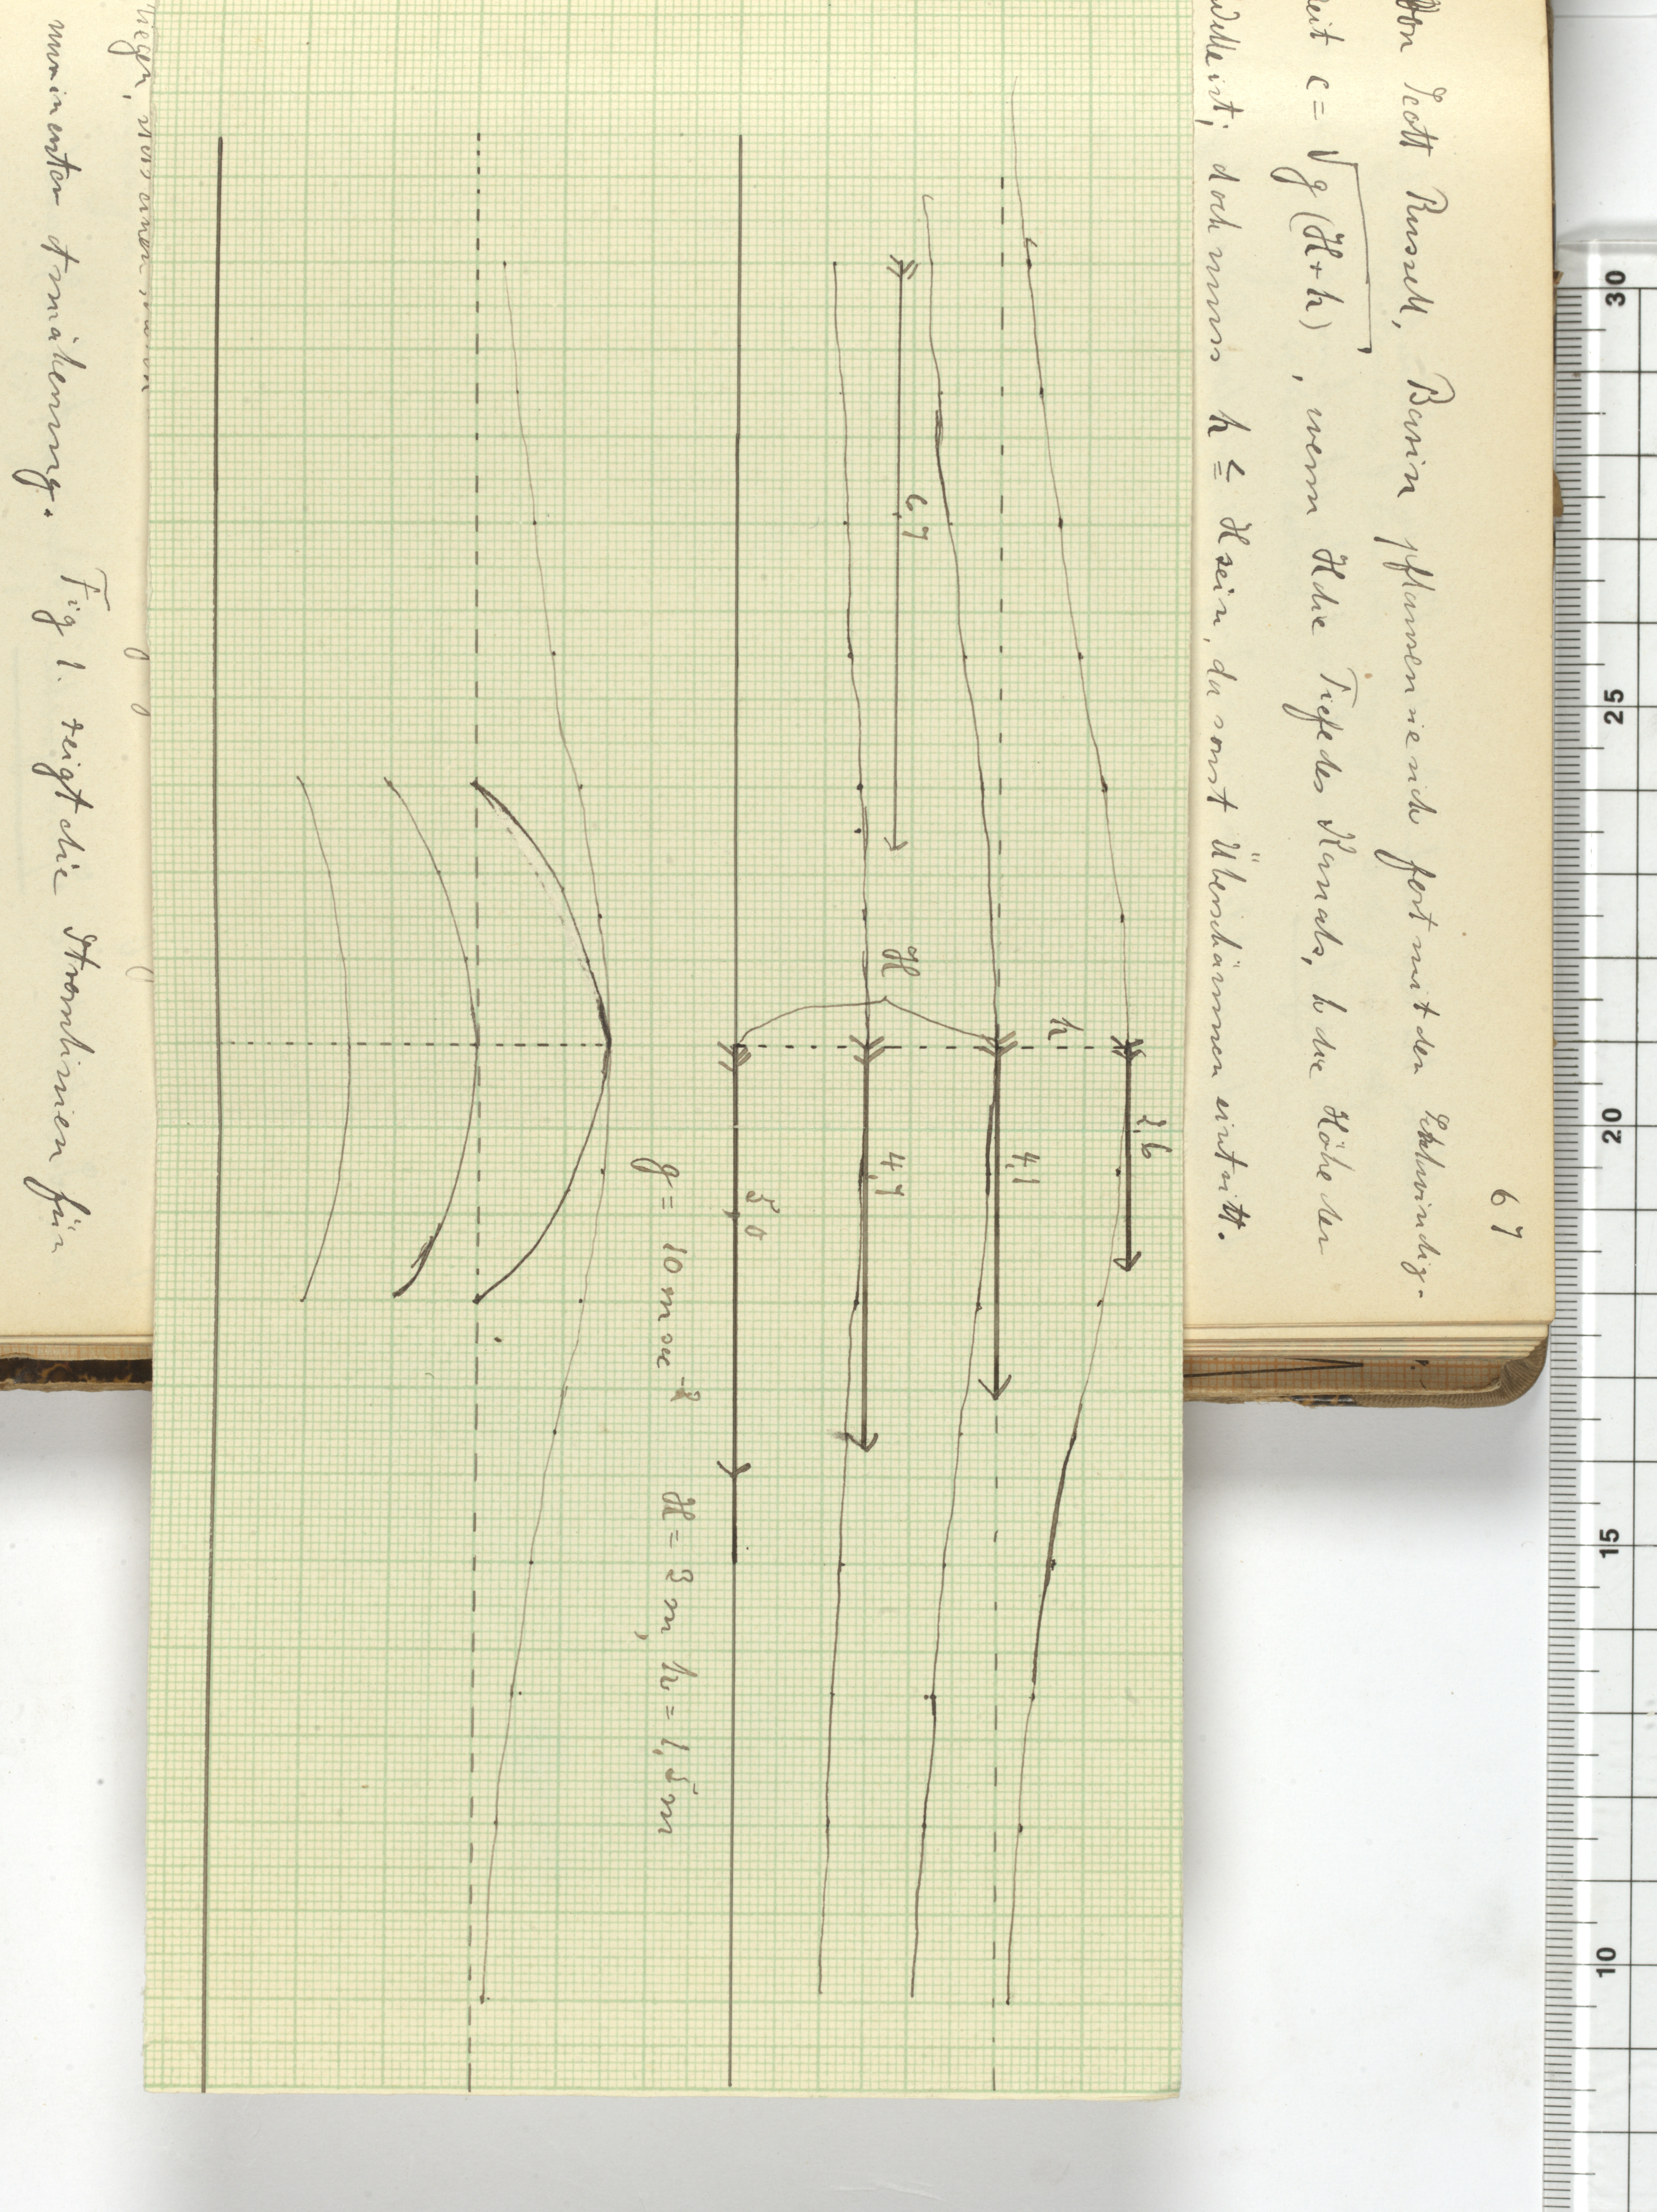 67
von Scott Russell, Bazin pflanzen sie sich fort mit der Geschwindig-
keit c = √g(H+h), wenn H die Tiefe des Kanals, h die Höhe der
Welle ist; doch muss h ≦ H sein, da sonst Überschäumen eintritt.
2,6
h
4,1
H
6,7
4,7
5,0
g = 10 m sec⁻² H = 3 m, h = 1,5 m
Fig 1. zeigt die Stromlinien für
30
25
20
15
10